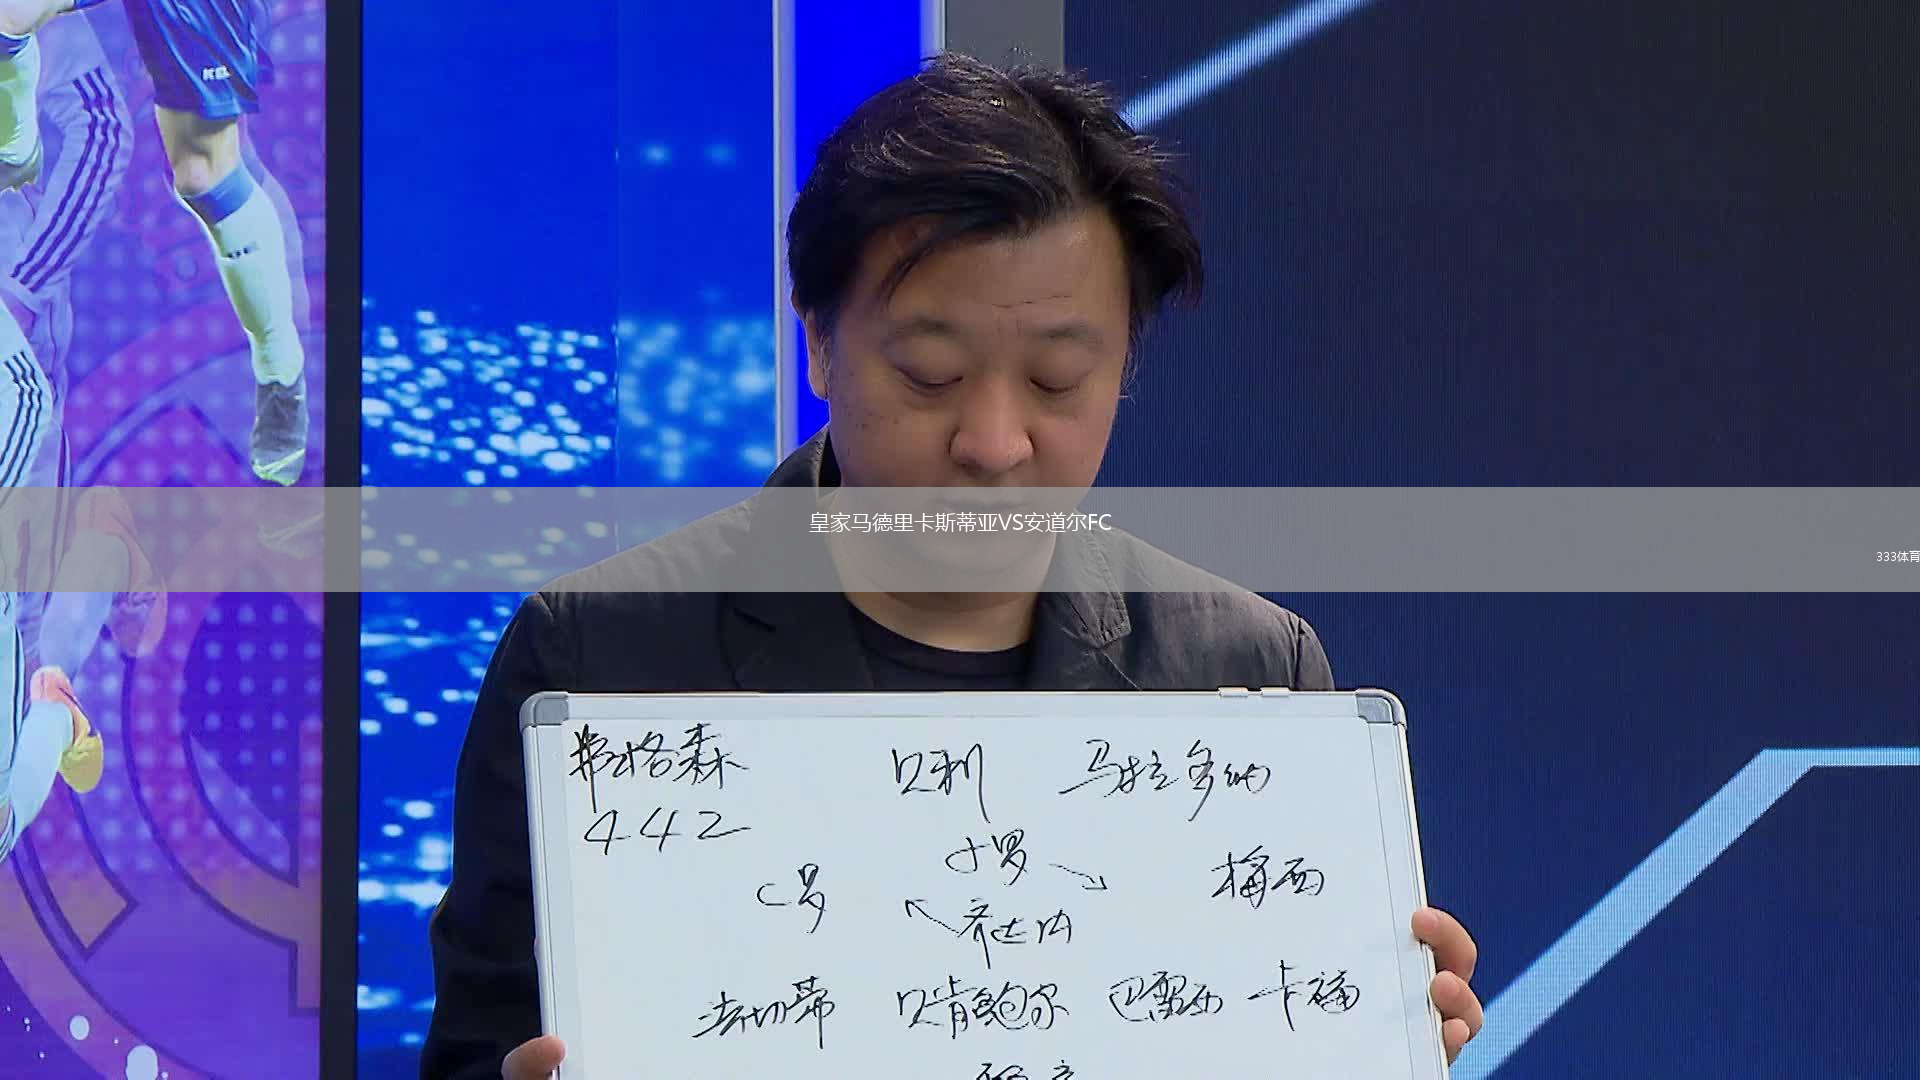 皇家马德里卡斯蒂亚VS安道尔FC
333体育
弗格森 贝利 马拉多纳
442
小罗
C罗 梅西
齐达内
法切蒂 贝肯鲍尔 巴雷西 卡福